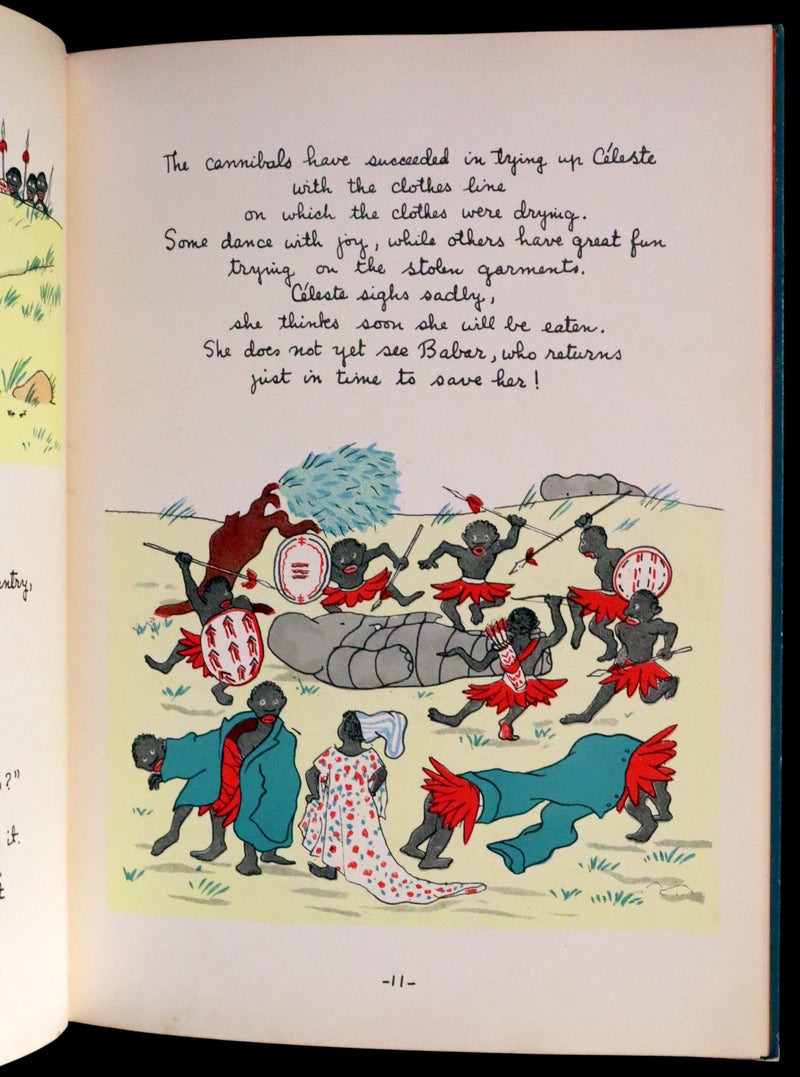 The cannibals have succeeded in tying up Céleste
with the clothes line
on which the clothes were drying.
Some dance with joy, while others have great fun
trying on the stolen garments.
Céleste sighs sadly,
she thinks soon she will be eaten.
She does not yet see Babar, who returns
just in time to save her!
-11-
?"
it.